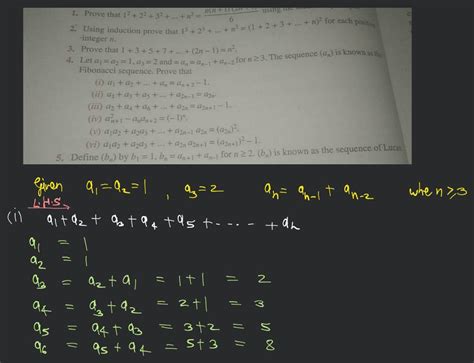 1. Prove that 1² + 2² + 3² + ... + n² = n(n + 1)(2n + 1) / 6 using
2. Using induction prove that 1³ + 2³ + ... + n³ = (1 + 2 + 3 + ... + n)² for each positive
integer n.
3. Prove that 1 + 3 + 5 + 7 + ... + (2n − 1) = n².
4. Let a₁ = a₂ = 1, a₃ = 2 and = aₙ = aₙ₋₁ + aₙ₋₂ for n ≥ 3. The sequence (aₙ) is known as the
Fibonacci sequence. Prove that
(i) a₁ + a₂ + ... + aₙ = aₙ₊₂ − 1.
(ii) a₁ + a₃ + a₅ + ... + a₂ₙ₋₁ = a₂ₙ.
(iii) a₂ + a₄ + a₆ + ... + a₂ₙ = a₂ₙ₊₁ − 1.
(iv) a²ₙ₊₁ − aₙaₙ₊₂ = (−1)ⁿ.
(v) a₁a₂ + a₂a₃ + ... + a₂ₙ₋₁ a₂ₙ = (a₂ₙ)².
(vi) a₁a₂ + a₂a₃ + ... + a₂ₙ a₂ₙ₊₁ = (a₂ₙ₊₁)² − 1.
5. Define (bₙ) by b₁ = 1, bₙ = aₙ₊₁ + aₙ₋₁ for n ≥ 2. (bₙ) is known as the sequence of Lucas
Given a₁ = a₂ = 1 , a₃ = 2 aₙ = aₙ₋₁ + aₙ₋₂ when n ≥ 3
L.H.S
(i) a₁ + a₂ + a₃ + a₄ + a₅ + ...... + aₙ
a₁ = 1
a₂ = 1
a₃ = a₂ + a₁ = 1 + 1 = 2
a₄ = a₃ + a₂ = 2 + 1 = 3
a₅ = a₄ + a₃ = 3 + 2 = 5
a₆ = a₅ + a₄ = 5 + 3 = 8